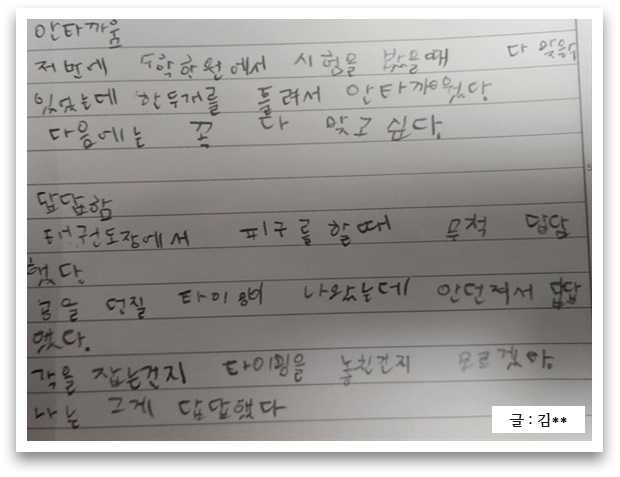 안타까움
저번에 수학학원에서 시험을 봤을때 다 맞을수
있었는데 한두개를 틀려서 안타까웠당
다음에는 꼭 다 맞고 싶다.
답답함
태권도장에서 피구를 할때 무척 답답
했다.
공을 던질 타이밍이 나왔는데 안던져서 답답
했다.
각을 잡는건지 타이밍을 놓친건지 모르겠야
나는 그게 답답했다
글 : 김**